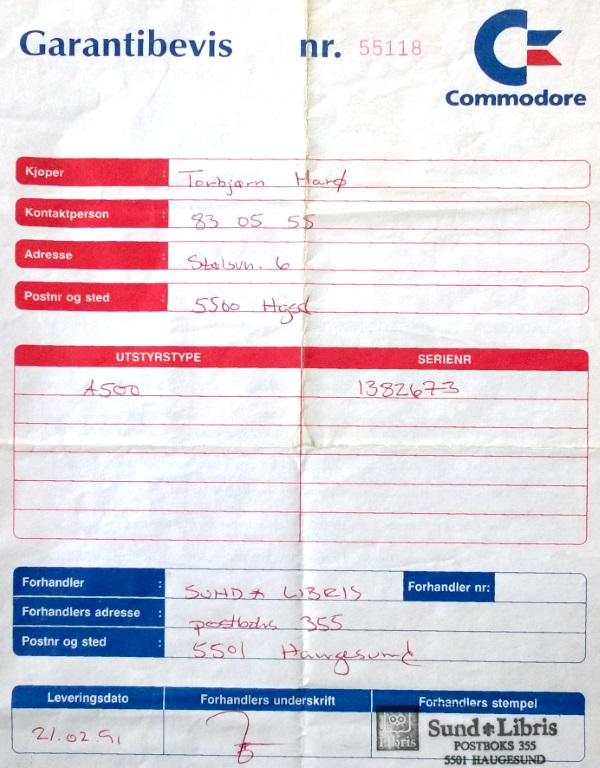 Garantibevis nr. 55118
Commodore
Kjøper : Torbjørn Marø
Kontaktperson : 83 05 55
Adresse : Stølsvn. 6
Postnr og sted : 5500 Hgsd
UTSTYRSTYPE SERIENR
A500 1382673
Forhandler : SUND * LIBRIS Forhandler nr:
Forhandlers adresse : postboks 355
Postnr og sted : 5501 Haugesund
Leveringsdato Forhandlers underskrift Forhandlers stempel
21.02.91
Libris Sund*Libris
POSTBOKS 355
5501 HAUGESUND